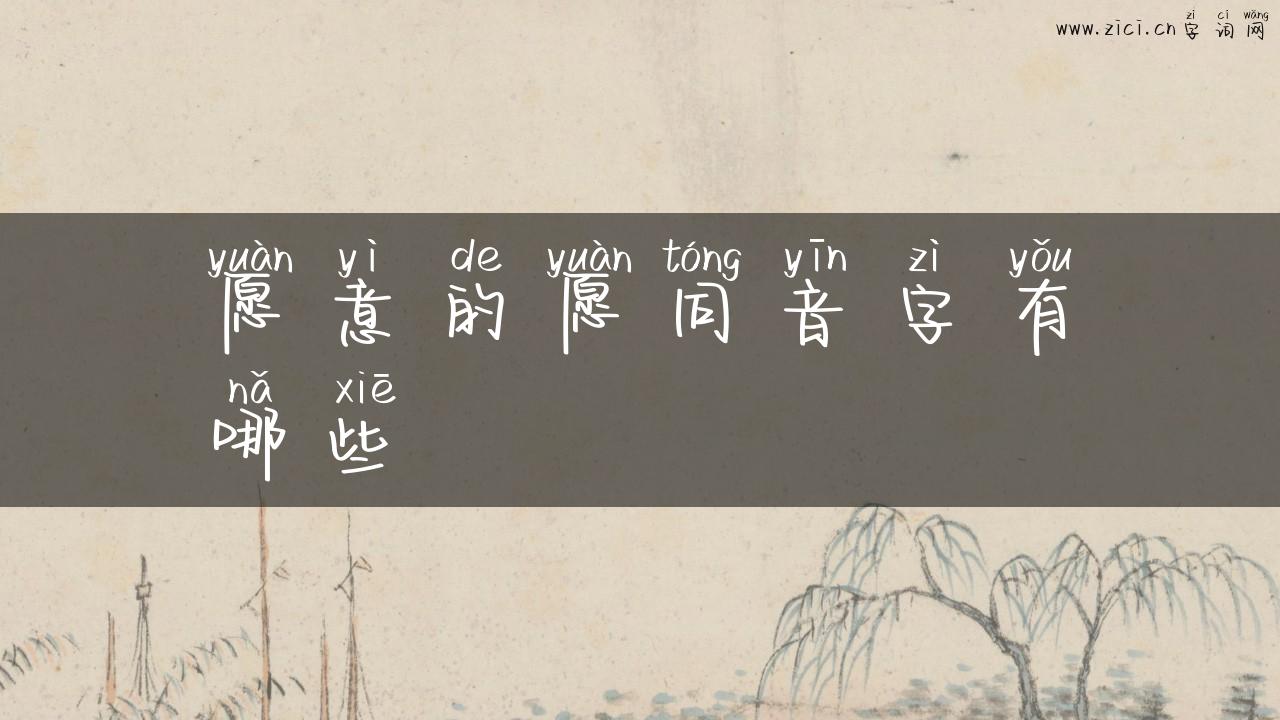 zì cí wǎng
www.zici.cn 字词网
yuàn yì de yuàn tóng yīn zì yǒu
愿意的愿同音字有
nǎ xiē
哪些